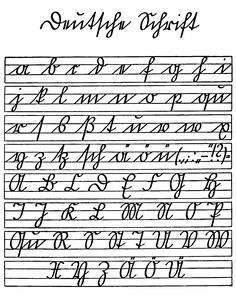 Deutsche Schrift
a b c d e f g h i
j k l m n o p qu
r s ſ ß t u v w x
y z tz ſch ä ö ü (,.;:„-“!?)
A B C D E F G H
I J K L M N O P
Qu R S St T U V W
X Y Z Ä Ö Ü